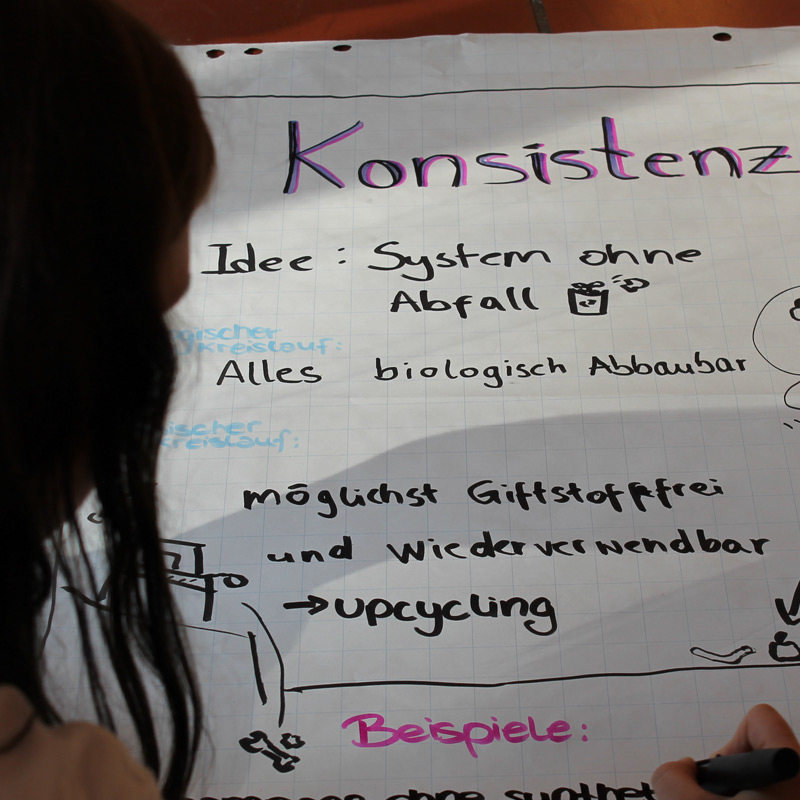 Konsistenz
Idee: System ohne
Abfall
kreislauf:
Alles biologisch Abbaubar
kreislauf:
möglichst Giftstofffrei
und wiederverwendbar
→ upcycling
Beispiele:
ohne